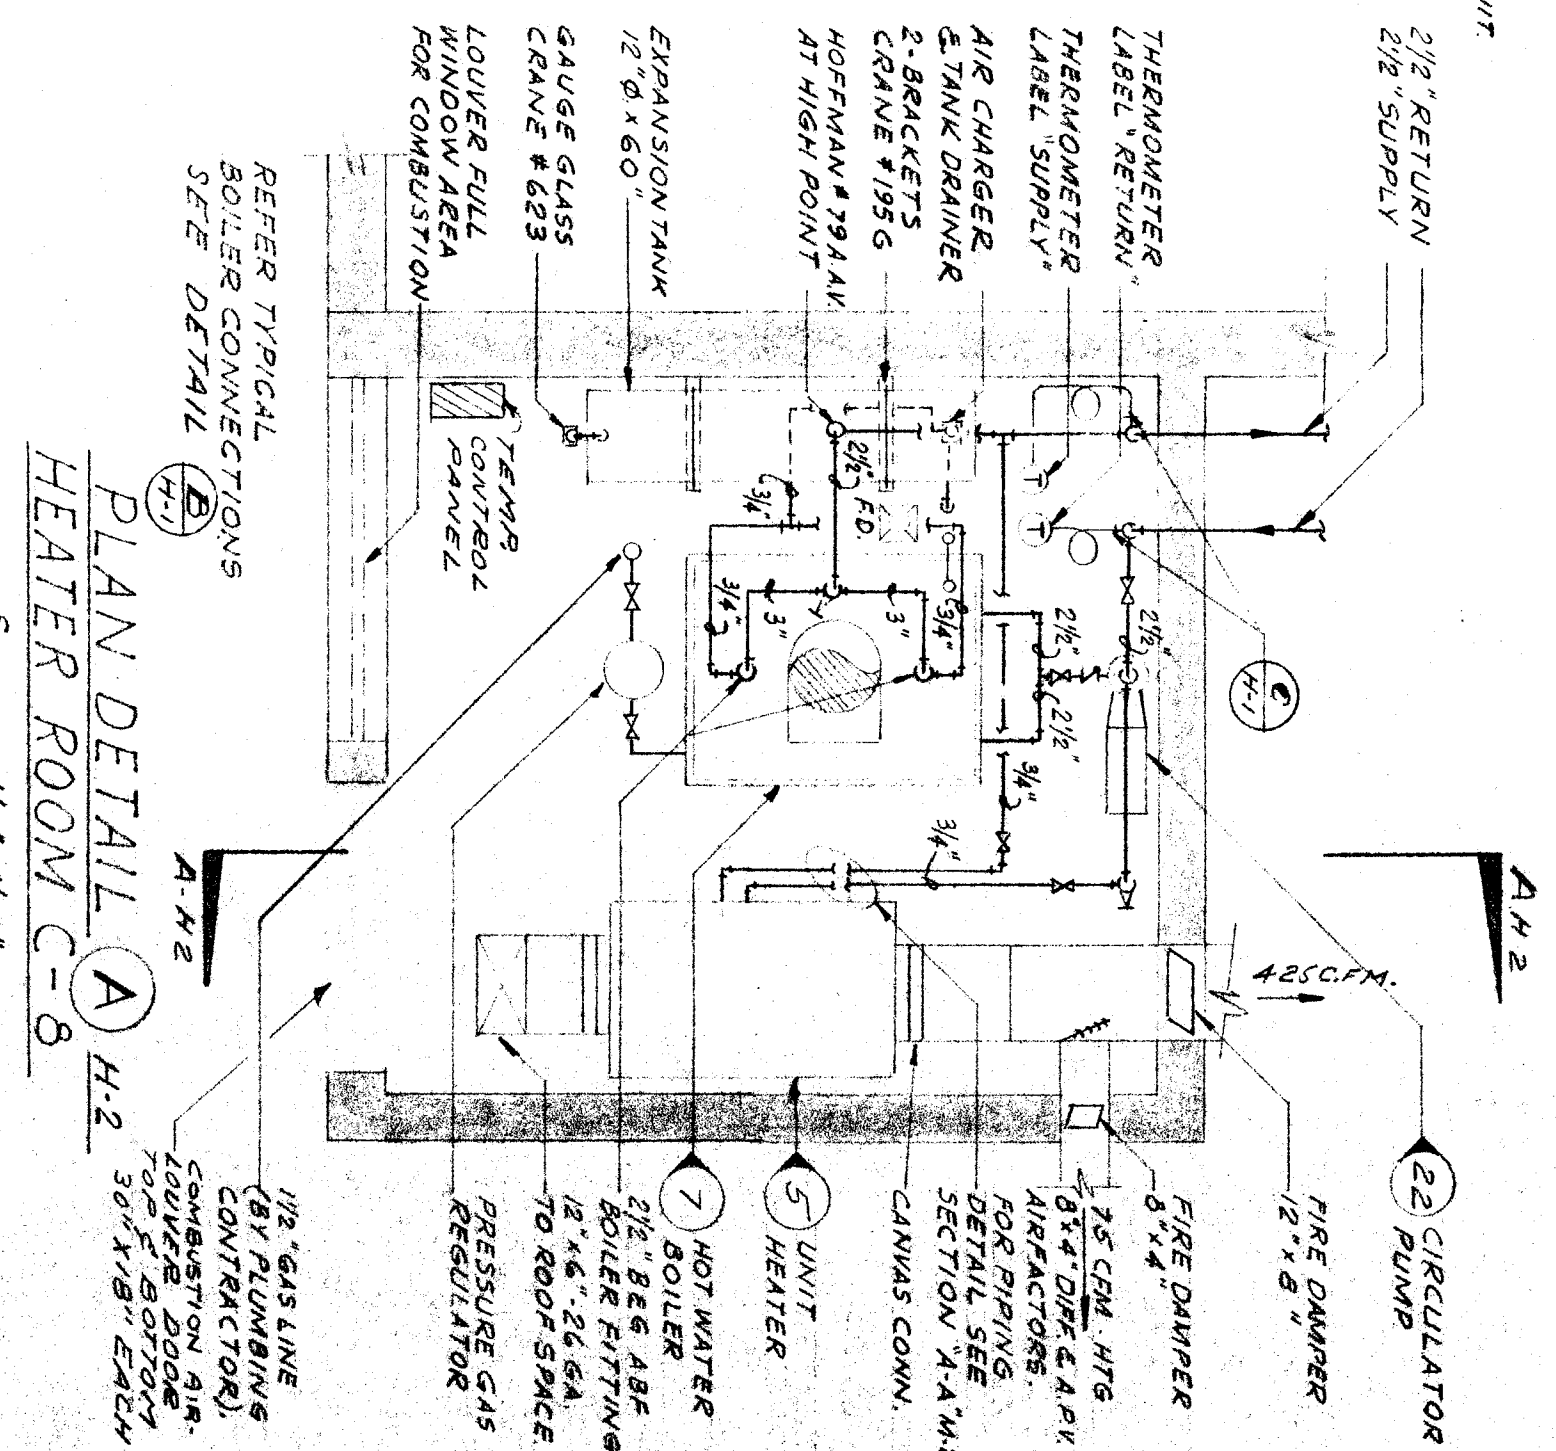 2½" RETURN
2½" SUPPLY
THERMOMETER
LABEL "RETURN"
THERMOMETER
LABEL "SUPPLY"
AIR CHARGER
& TANK DRAINER
2-BRACKETS
CRANE #195G
HOFFMAN #79 A.A.V.
AT HIGH POINT
EXPANSION TANK
12"Ø x 60"
GAUGE GLASS
CRANE #623
LOUVER FULL
WINDOW AREA
FOR COMBUSTION
REFER TYPICAL
BOILER CONNECTIONS
SEE DETAIL
B
H-1
TEMP.
CONTROL
PANEL
2½"
F.D.
3/4"
3/4"
3"
3"
3/4"
2½"
2½"
2½"
3/4"
3/4"
C
H-1
A H2
A-H2
425 C.F.M.
22
CIRCULATOR
PUMP
FIRE DAMPER
12" x 8"
FIRE DAMPER
8" x 4"
75 CFM. HTG
8"x4" DIFF. & A.P.V.
AIRFACTORS.
FOR PIPING
DETAIL SEE
SECTION "A-A"
CANVAS CONN.
5
UNIT
HEATER
7
HOT WATER
BOILER
2½" B&G ABF
BOILER FITTING
12" x 6" - 26 GA.
TO ROOF SPACE
PRESSURE GAS
REGULATOR
1½" GAS LINE
(BY PLUMBING
CONTRACTOR).
COMBUSTION AIR-
LOUVER DOOR
TOP & BOTTOM
30" x 18" EACH
PLAN DETAIL A H-2
HEATER ROOM C-8